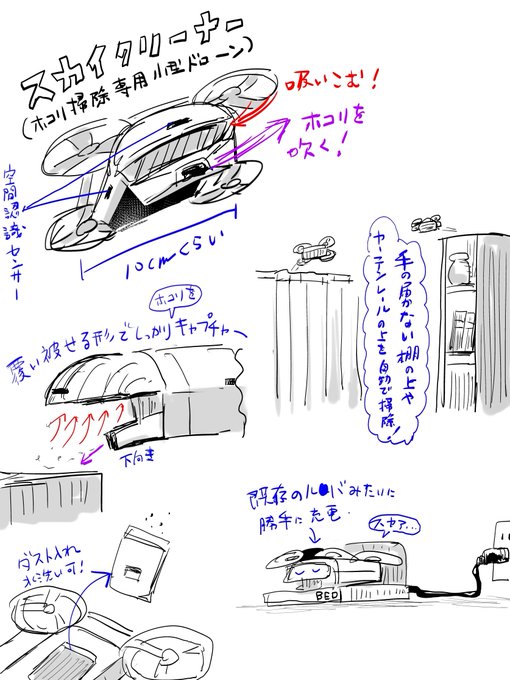 スカイクリーナー
(ホコリ掃除専用小型ドローン)
吸いこむ!
ホコリを
吹く!
空間認識センサー
10cmくらい
手の届かない棚の上や
カーテンレールの上を自動で掃除!
ホコリを
覆い被せる形でしっかりキャプチャー
下向き
既存のル●バみたいに
勝手に充電.
スヤァ…
BED
ダスト入れ
水洗い可!